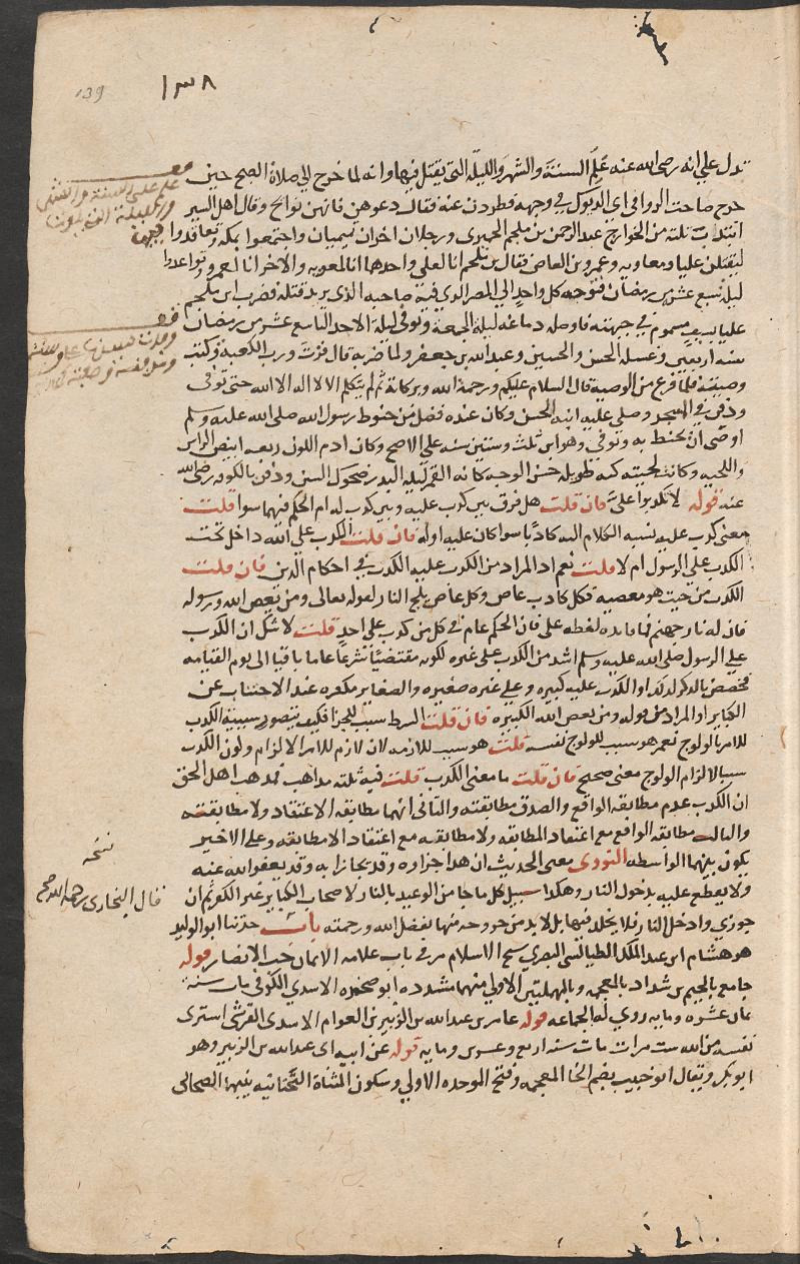 139
١٣٨
تدل على انه رضى الله عنه عَلِمَ السنةَ والشهرَ والليلةَ التى يقتل فيها وانه لما خرج الى صلاة الصبح حين
خرج صاحت الزواقى اى الديوك فى وجهه فطردن عنه فقال دعوهن فانهن نوائح وقال اهل السير
انتدب ثلثه من الخوارج عبد الرحمن بن ملجم الحميرى ورجلان اخران تميميان واجتمعوا بمكه وتعاقدوا
ليقتلن عليا ومعاويه وعمرو بن العاص فقال بن ملجم انا لعلى واحدهما انا لمعويه والاخر انا لعمرو وتواعدوا
ليلة سبع عشرة من رمضان فتوجه كل واحد الى المصر الذى فيه صاحبه الذى يريد قتله فضرب ابن ملجم
عليا بسيف مسموم فى جبهته فاوصله دماغه ليلة الجمعة وتوفى ليلة الاحد التاسع عشر من رمضان
سنه اربعين وغسله الحسن والحسين وعبد الله بن جعفر ولما ضربه قال فزت ورب الكعبة وكتب
وصيته فلما فرغ من الوصية قال السلام عليكم ورحمة الله وبركاته ثم لم يتكلم الا لا اله الا الله حتى توفى
ودفن فى السحر وصلى عليه ابنه الحسن وكان عنده فضل من حنوط رسول الله صلى الله عليه وسلم
اوصى ان يحنط به وتوفى وهو ابن ثلث وستين سنه على الاصح وكان ادم اللون ربعه ابيض الراس
واللحيه وكانت لحيته كثه طويله حسن الوجه كانه القمر ليله البدر ضحوك السن ودفن بالكوفه رضى الله
عنه قوله لا تكذبوا علىَّ فان قلت هل فرق بين كذب عليه وبين كذب له ام الحكم فيهما سوا قلت
معنى كذب عليه نسبه الكلام اليه كاذبا سوا كان عليه او له فان قلت الكذب على الله داخل تحت
الكذب على الرسول ام لا قلت نعم اذ المراد من الكذب عليه الكذب فى احكام الدين فان قلت
الكذب من حيث هو معصيه فكل كاذب عاص وكل عاص يلج النار لقوله تعالى ومن يعص الله ورسوله
فان له نار جهنم فما فايده لفظه على فان الحكم عام فى كل من كذب على احد قلت لا شك ان الكذب
على الرسول صلى الله عليه وسلم اشد من الكذب على غيره لكونه مقتضيًا شرعًا عاما باقيا الى يوم القيامه
فخصص بالذكر لذلك او الكذب عليه كبيره وعلى غيره صغيره والصغاير مكفره عند الاجتناب عن
الكباير او المراد من قوله ومن يعص الله الكبيره فان قلت الشرط سبب للجزا فكيف يتصور سببية الكذب
للامر بالولوج نعم هو سبب للولوج نفسه قلت هو سبب للازمه لان لازم للامر الالزام وكون الكذب
سببا لالزام الولوج معنى صحيح فان قلت ما معنى الكذب قلت فيه ثلثه مذاهب مذهب اهل الحق
ان الكذب عدم مطابقه الواقع والصدق مطابقته والثانى انهما مطابقه الاعتقاد ولا مطابقته
والثالث مطابقه الواقع مع اعتقاد المطابقه ولا مطابقته مع اعتقاد الا مطابقه وعلى الاخير
يكون بينهما الواسطه النووى معنى الحديث ان هذا جزاوه وقد يجازا به وقد يعفو الله عنه
ولا يقطع عليه بدخول النار وهكذا سبيل كل ما جا من الوعيد بالنار لاصحاب الكباير غير الكفر ثم ان
جوزى وادخل النار فلا يخلد فيها بل لا بد من خروجه منها بفضل الله ورحمته باب حدثنا ابو الوليد
هو هشام ابن عبد الملك الطيالسى البصرى شيخ الاسلام مر فى باب علامه الايمان حب الانصار قوله
جامع بالجيم بن شداد بالمعجمه وبالمهملتين الاولى منهما مشدده ابو صخره الاسدى الكوفى مات سنة
ثمان عشره ومايه روى له الجماعه قوله عامر بن عبد الله بن الزبير بن العوام الاسدى القرشى اشترى
نفسه من الله ست مرات مات سنه اربع وعشرين ومايه قوله عن ابيه اى عبد الله بن الزبير وهو
ابو بكر ويقال ابو خبيب بضم الخا المعجمه وفتح الموحده الاولى وسكون المثناة التحتانيه بينهما الصحابى
نسخه
قال البخارى رحمه الله